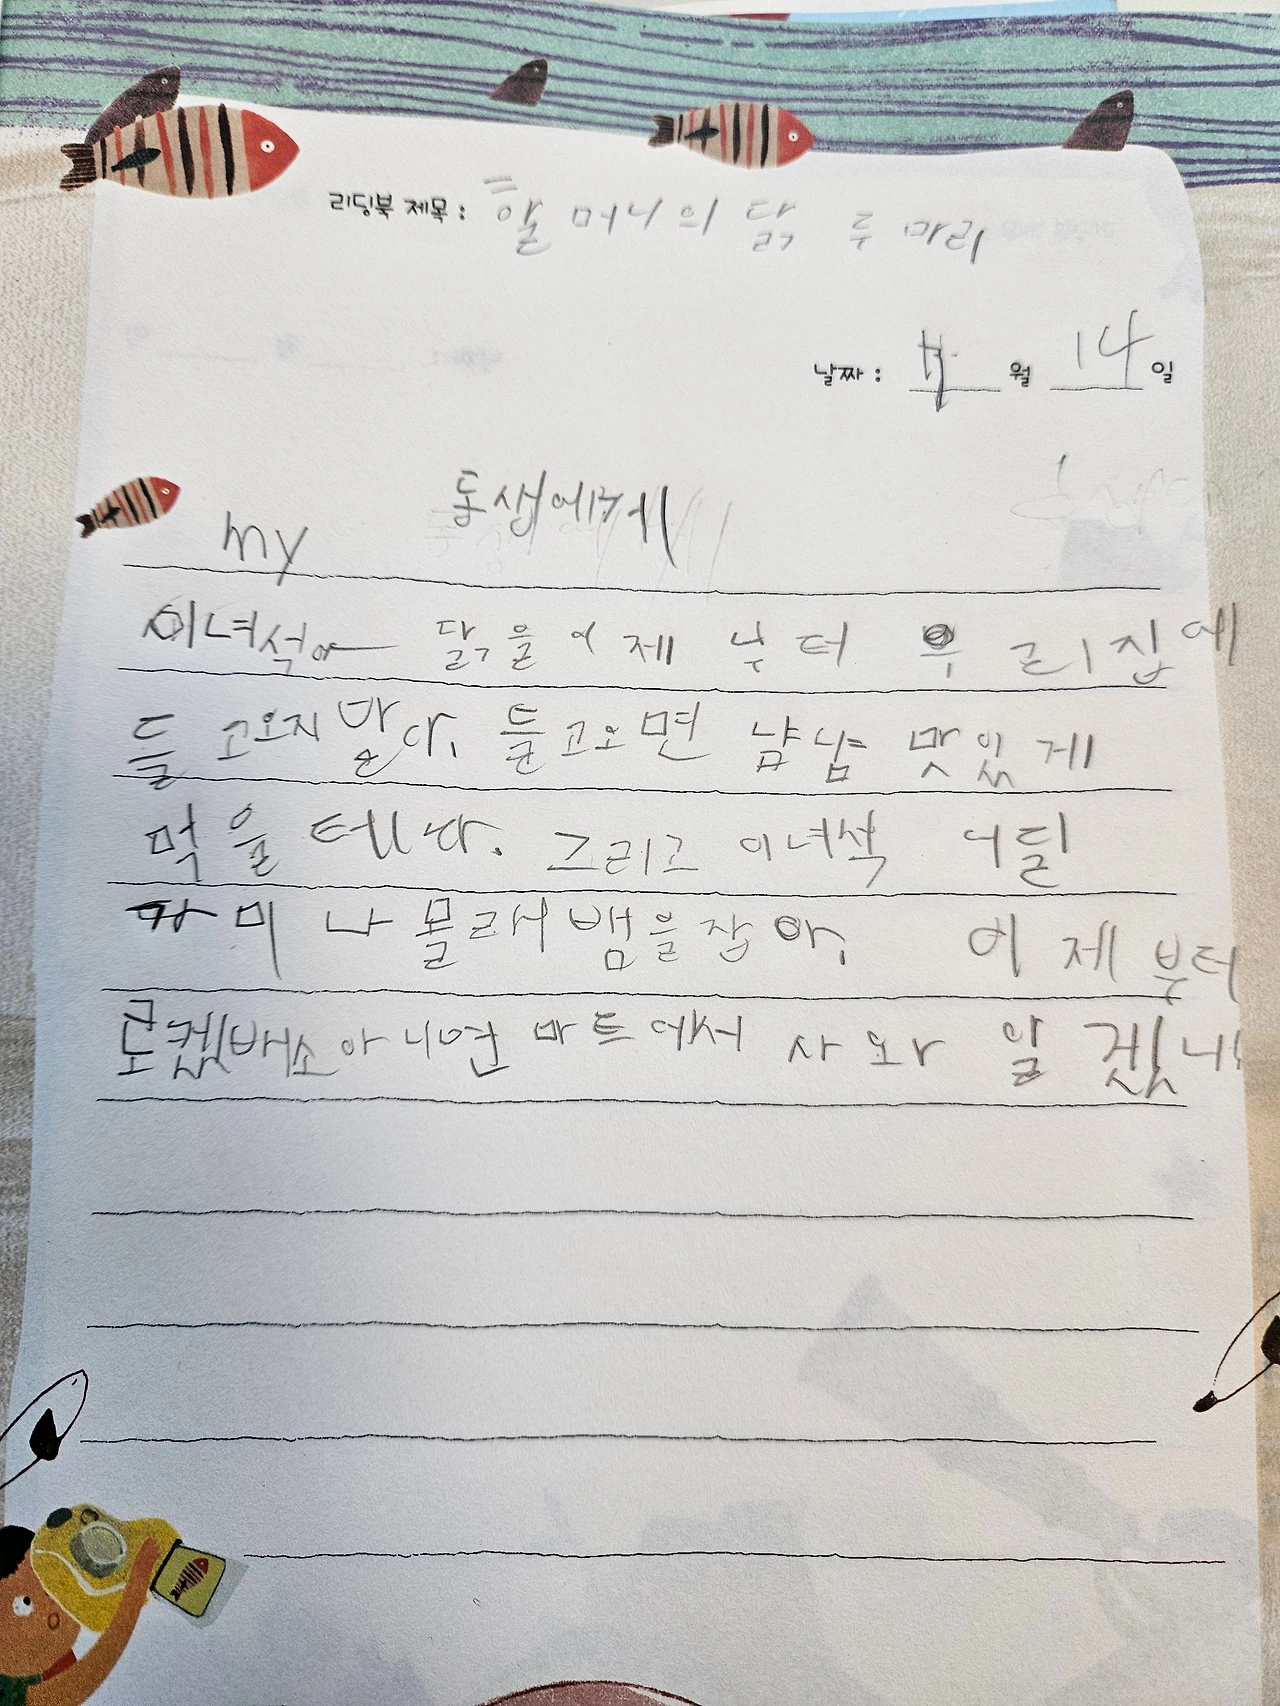 리딩북 제목: 할머니의 닭 두마리
날짜: 월 14일
my 동생에게
이녀석아 닭을 이제 부터 우리집에
들고오지말아. 들고오면 냠냠 맛있게
먹을테다. 그리고 이녀석 어딜
감히 나 몰래 뱀을 잡아. 이제부터
로켓배송 아니면 마트에서 사와 알겠니!